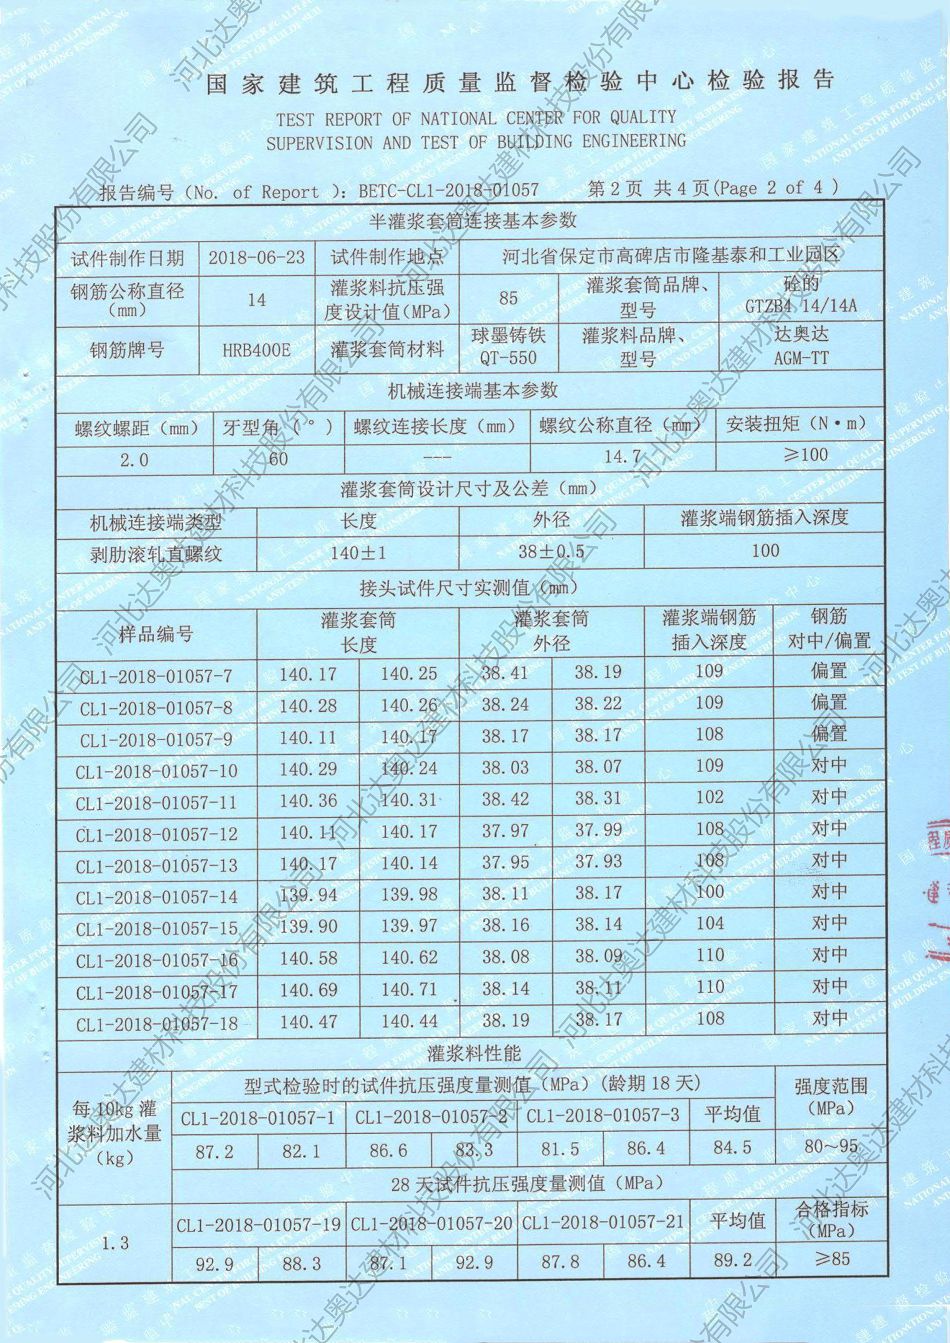 国家建筑工程质量监督检验中心检验报告
TEST REPORT OF NATIONAL CENTER FOR QUALITY
SUPERVISION AND TEST OF BUILDING ENGINEERING
报告编号(No. of Report ): BETC-CL1-2018-01057 第2页 共4页(Page 2 of 4 )
半灌浆套筒连接基本参数
试件制作日期 2018-06-23 试件制作地点 河北省保定市高碑店市隆基泰和工业园区
钢筋公称直径(mm) 14 灌浆料抗压强度设计值(MPa) 85 灌浆套筒品牌、型号 砼的 GTZB4 14/14A
钢筋牌号 HRB400E 灌浆套筒材料 球墨铸铁 QT-550 灌浆料品牌、型号 达奥达 AGM-TT
机械连接端基本参数
螺纹螺距(mm) 牙型角(°) 螺纹连接长度(mm) 螺纹公称直径(mm) 安装扭矩(N·m)
2.0 60 --- 14.7 ≥100
灌浆套筒设计尺寸及公差(mm)
机械连接端类型 长度 外径 灌浆端钢筋插入深度
剥肋滚轧直螺纹 140±1 38±0.5 100
接头试件尺寸实测值(mm)
样品编号 灌浆套筒长度 灌浆套筒外径 灌浆端钢筋插入深度 钢筋对中/偏置
CL1-2018-01057-7 140.17 140.25 38.41 38.19 109 偏置
CL1-2018-01057-8 140.28 140.26 38.24 38.22 109 偏置
CL1-2018-01057-9 140.11 140.17 38.17 38.17 108 偏置
CL1-2018-01057-10 140.29 140.24 38.03 38.07 109 对中
CL1-2018-01057-11 140.36 140.31 38.42 38.31 102 对中
CL1-2018-01057-12 140.11 140.17 37.97 37.99 108 对中
CL1-2018-01057-13 140.17 140.14 37.95 37.93 108 对中
CL1-2018-01057-14 139.94 139.98 38.11 38.17 100 对中
CL1-2018-01057-15 139.90 139.97 38.16 38.14 104 对中
CL1-2018-01057-16 140.58 140.62 38.08 38.09 110 对中
CL1-2018-01057-17 140.69 140.71 38.14 38.11 110 对中
CL1-2018-01057-18 140.47 140.44 38.19 38.17 108 对中
灌浆料性能
每10kg灌浆料加水量(kg) 型式检验时的试件抗压强度量测值(MPa)(龄期18天) 强度范围(MPa)
CL1-2018-01057-1 CL1-2018-01057-2 CL1-2018-01057-3 平均值
87.2 82.1 86.6 83.3 81.5 86.4 84.5 80~95
28天试件抗压强度量测值(MPa)
1.3 CL1-2018-01057-19 CL1-2018-01057-20 CL1-2018-01057-21 平均值 合格指标(MPa)
92.9 88.3 87.1 92.9 87.8 86.4 89.2 ≥85
河北达奥达建材科技股份有限公司